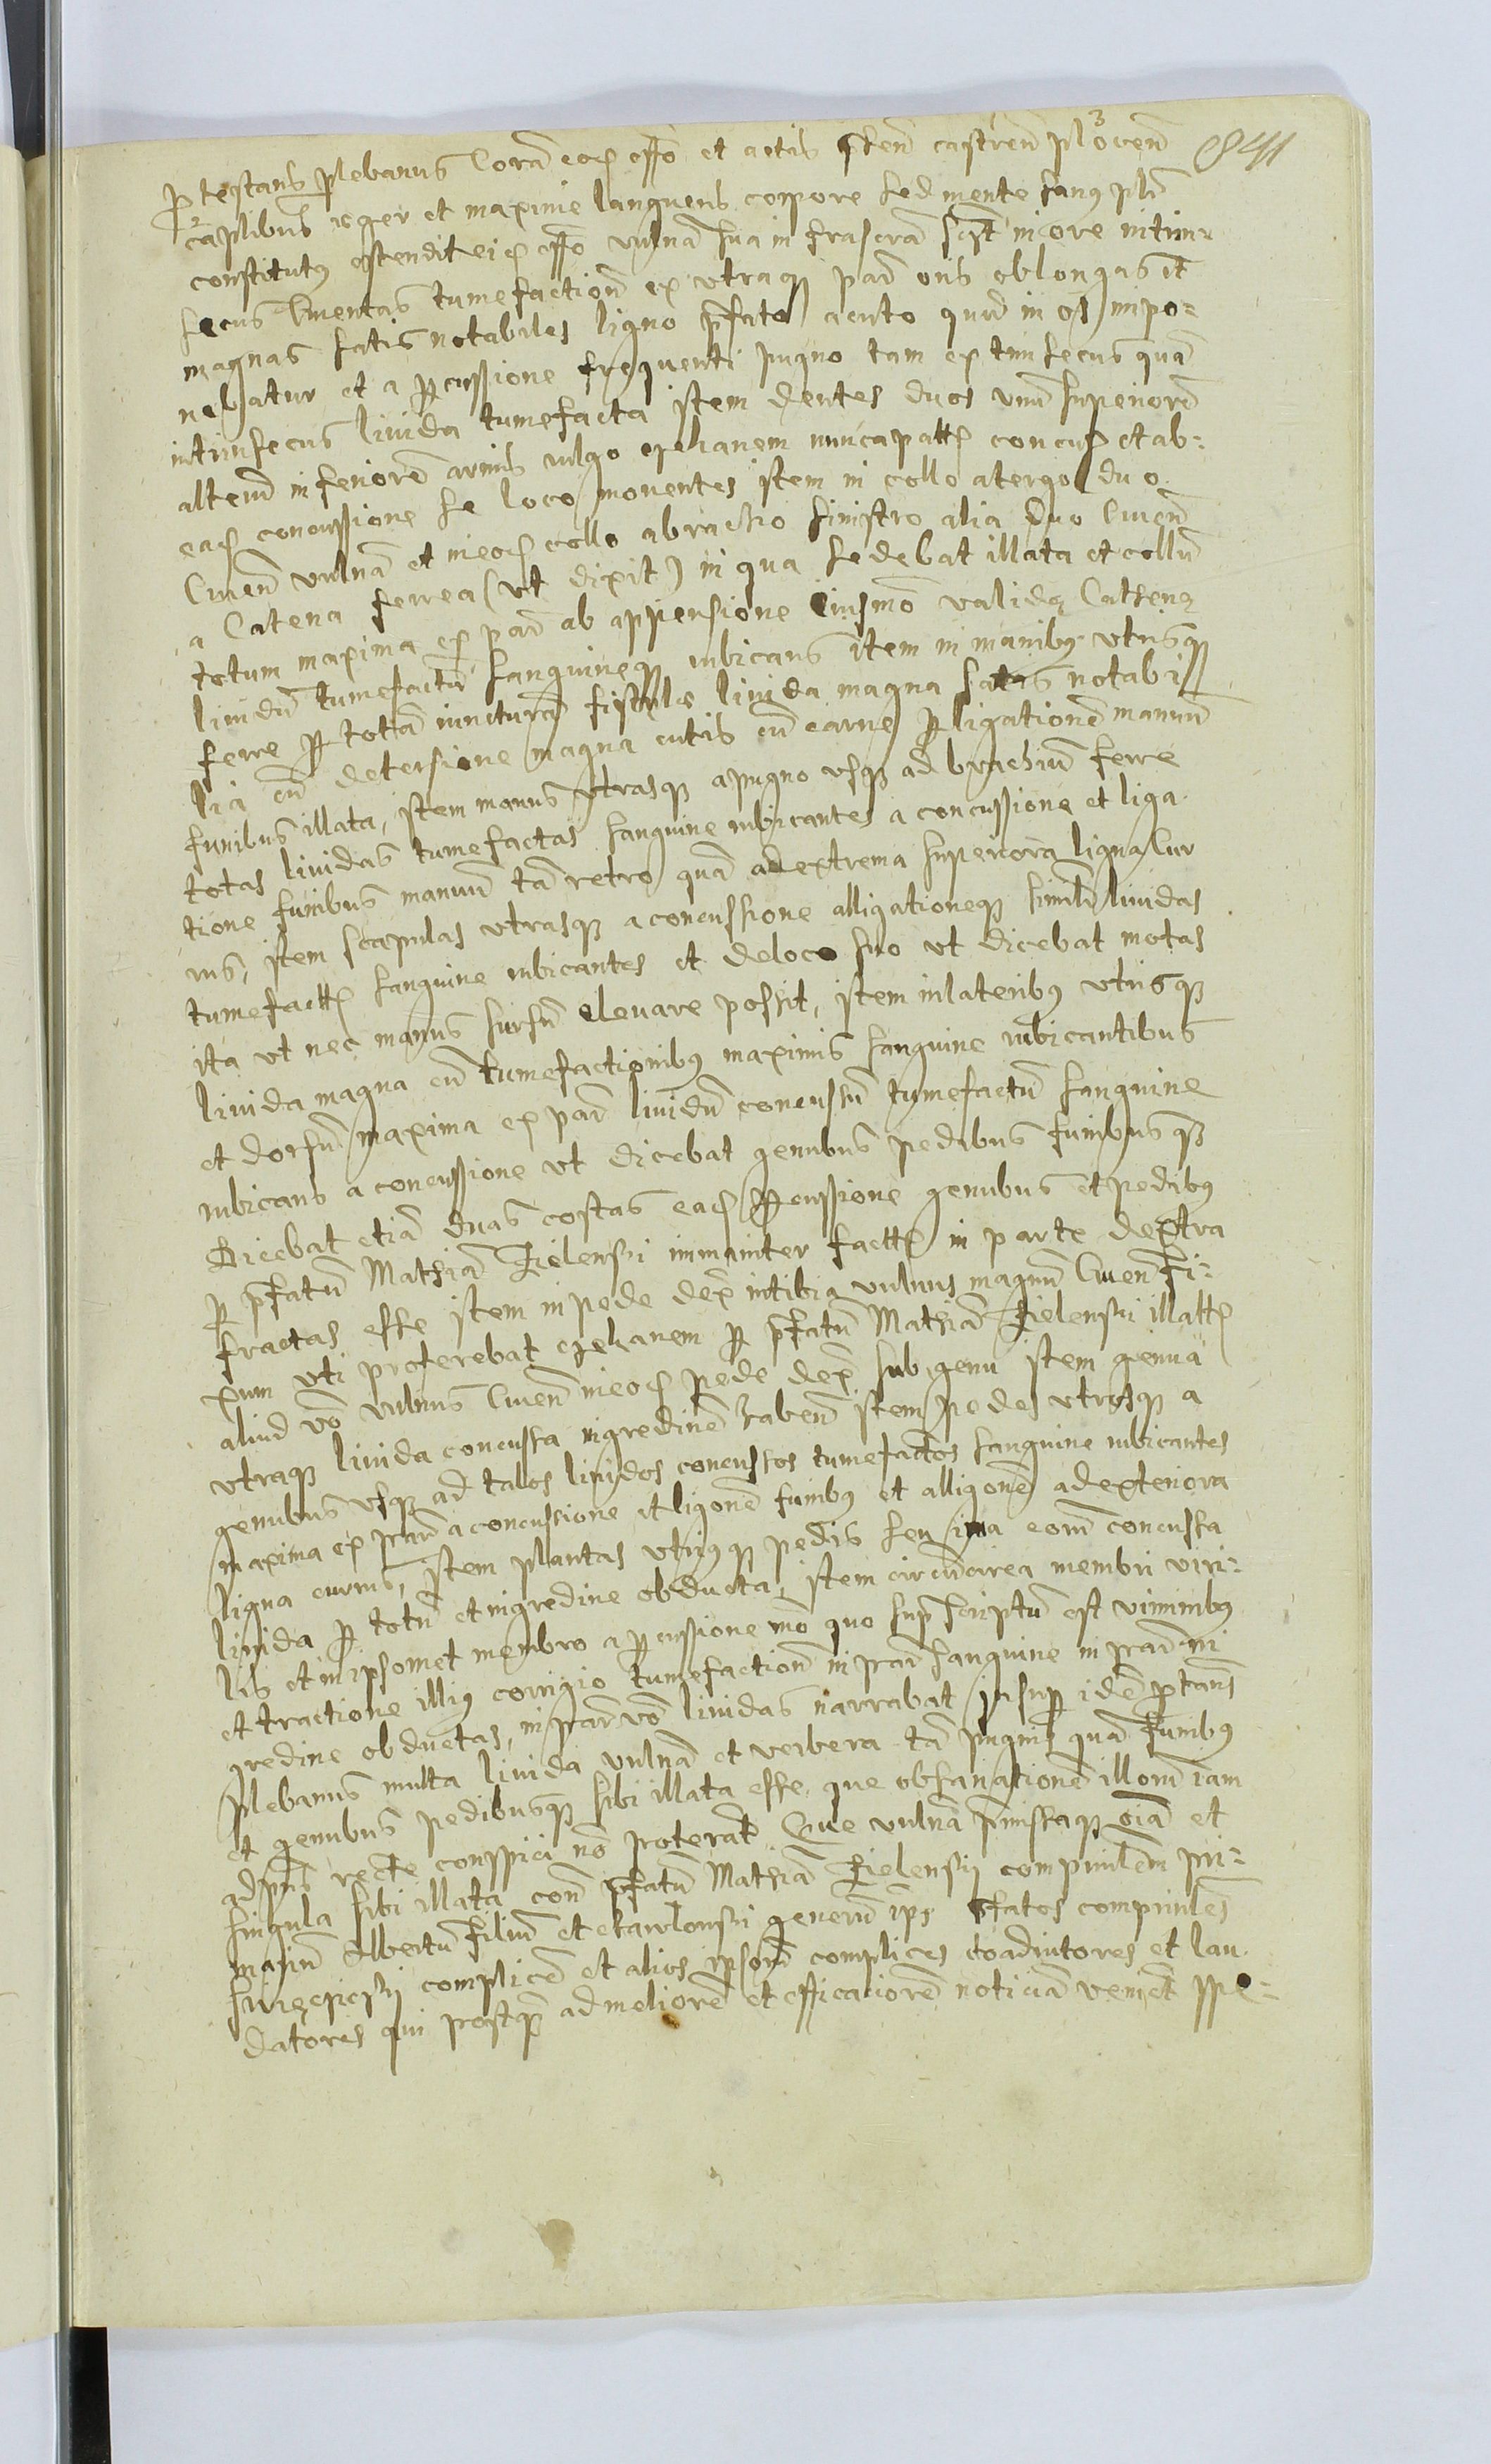 841
ptestans plebanus Corã eod offo et actis pñten castren plocen
capitlibus eger et maxime languens corpore sed mente sanus pñr
constitutus ostendit eid offo vulnã sua infrascrã scilt in ore intim=
secus Cruentas tumefaction ex utraq parĩ oris oblongas et
magnas satis notabiles ligno pfato acuto quod in os impo=
nebatur et a pcussione frequenti pugno tam extrinsecus quã
intrinsecus livida tumefacta Item dentes duos unũ superiorẽ
alterũ inferiorẽ armis vulgo czekanem nuncapatt concus et ab=
ead concussione se loco moventes Item in collo a tergo duo
Cruen vulnã et in eod collo a brachio sinistro alia Duo Cruen
a Catena ferrea (ut dixit) in qua sedebat illata et collũ
totum maxima ex parĩ ab appensione eiusmõ valide Cathene
lividũ tumefactũ sanguineq rubicans Item in manibus utrisq
fere p totã iuncturã fistule livida magna satis notabi
lia cũ detersione magna cutis cũ carne p ligationẽ manuũ
funibus illata, Item manus utrasq a pugno usq ad brachiũ fere
totas lividas tumefactas sanguine rubicantes a concussione et liga
tione funibus manuũ tã retro quã ad extrema superiora ligna Cur
rus, Item scapulas utrasq a concussione alligationeq simili lividas
tumefactt sanguine rubicantes et de loco suo ut dicebat motas
ita ut nec manus sursũ elevare possit, Item in lateribus utrisq
livida magna cũ tumefactionibus maximis sanguine rubicantibus
et dorsũ maxima ex parĩ lividũ concussũ tumefactũ sanguine
rubicans a concussione ut dicebat genubus pedibus funibusq
Dicebat etiã duas costas ead pcussione genubus et pedibus
p pfatũ Mathiã Zielenski immaniter factt in parte dextra
fractas esse Item in pede dex in tibia vulnus magnũ Cruen fi=
xum uti proferebat czekanem p pfatũ Mathiã Zielenski illatt
aliud vo vulnus Cruen in eod pede dex sub genu Item genua
utraq livida concussa nigredinẽ habeñ Item pedes utrosq a
genubus usq ad talos lividos concussos tumefactos sanguine rubicantes
maxima ex parĩ a concussione et ligonẽ funibus et alligonẽ ad exteriora
ligna currus, Item plantas utriusq pedis seu ima eorũ concussa
livida p totũ et nigredine obducta, Item circũcirca membri viri=
lis et in ipsomet membro a pcussione mõ quo supscriptũ est viminibus
et tractione illius corrigio tumefaction in parĩ sanguine in parĩ ni
gredine obductas, in parĩ vo lividas narrabat insup idẽ ptans
plebanus multa livida vulnã et verbera tã pugnis quã funibus
et genubus pedibusq sibi illata esse que ob sanationẽ illorũ iam
ad pñs recte conspici nõ poterat Que vulnã pmissaq oĩa et
singula sibi illata coñ pfatũ Mathiã Zielenskij compnilem pri=
mariũ Albertũ filiũ et Karlowski generũ ips pfatos compnilẽs
complicẽ et alios ipsorũ complices coadiutores et lau
datores qui postq ad meliorẽ et efficatiorẽ noticiã veniẽt